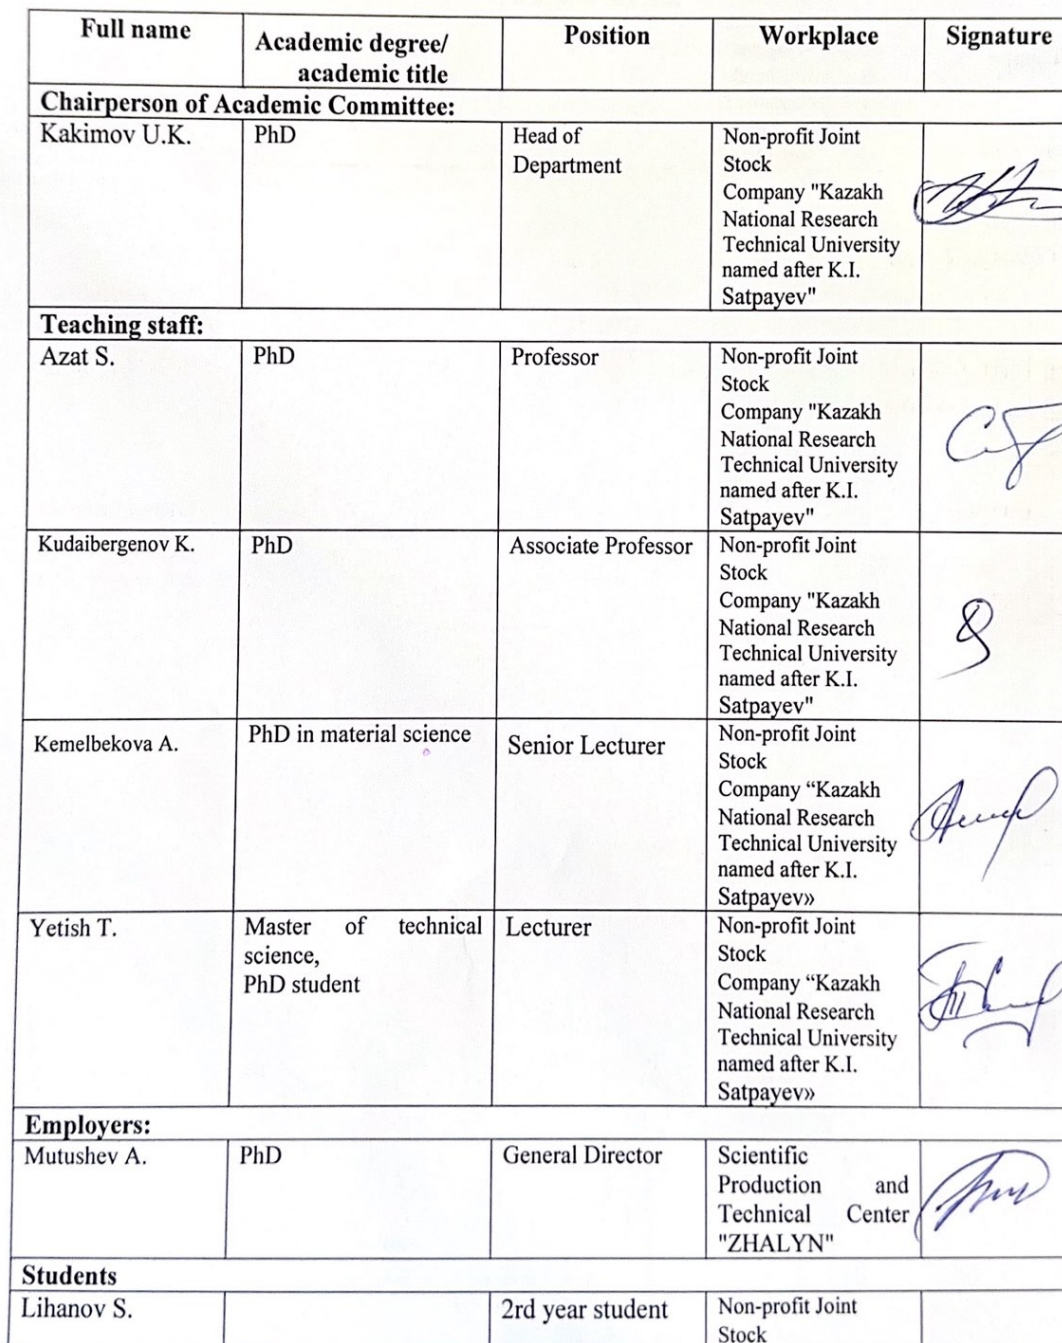 Full name
Academic degree/
academic title
Position
Workplace
Signature
Chairperson of Academic Committee:
Kakimov U.K.
PhD
Head of
Department
Non-profit Joint
Stock
Company "Kazakh
National Research
Technical University
named after K.I.
Satpayev"
Teaching staff:
Azat S.
PhD
Professor
Non-profit Joint
Stock
Company "Kazakh
National Research
Technical University
named after K.I.
Satpayev"
Kudaibergenov K.
PhD
Associate Professor
Non-profit Joint
Stock
Company "Kazakh
National Research
Technical University
named after K.I.
Satpayev"
Kemelbekova A.
PhD in material science
Senior Lecturer
Non-profit Joint
Stock
Company “Kazakh
National Research
Technical University
named after K.I.
Satpayev»
Yetish T.
Master of technical
science,
PhD student
Lecturer
Non-profit Joint
Stock
Company “Kazakh
National Research
Technical University
named after K.I.
Satpayev»
Employers:
Mutushev A.
PhD
General Director
Scientific
Production and
Technical Center
"ZHALYN"
Students
Lihanov S.
2rd year student
Non-profit Joint
Stock